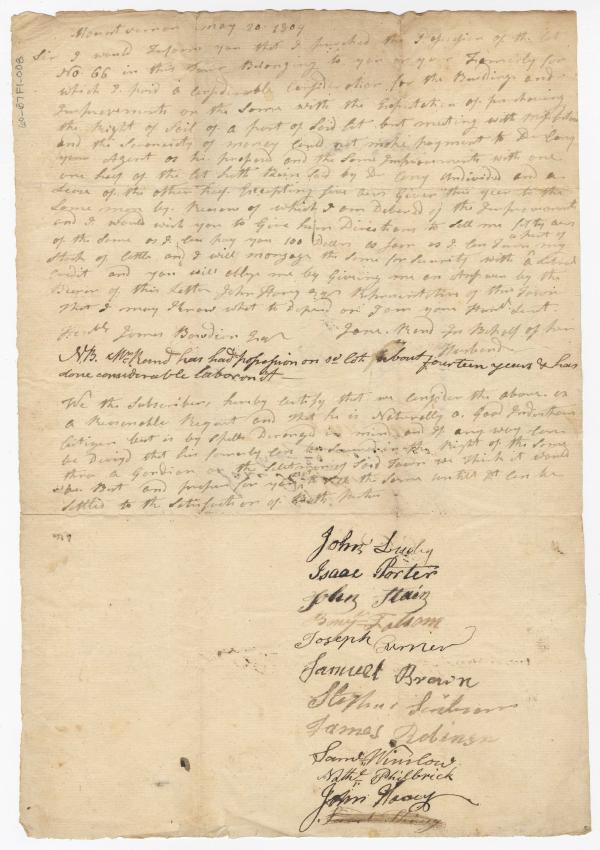 Mountvernon may 20 1809
Sir I would Inform you that I purched the Posesion of the lot
No 66 in this Town Belonging to you or your Famerly for
which I paid a Considerable Consideration for the Buildings and
Improvements on the Same with the Expectation of purchasing
the Right of Soil of a part of Said lot but meeting with
and the Scarcity of money Could not make payment to Dr Cony
your Agent as he proposed and the Same Improvements with one
one half of the lot hath Been Sold by Dr Cony undivided and a
Leace of the other half Excepting five acrs Given this year to the
Same man by Reason of which I am Debared of the Improvements
and I would wish you to Give him Directions to Sell me fifty acrs
of the Same as I Can pay you 100 Dollers as Soon as I Can turn a part of my
Stock of Cattle and I will morgage the Same for Security with a
Credit and you will oblige me by Giving me an Answer by the
Bearer of this Letter John Hovey Representitive of this Town
that I may Know what to Depend on I am your Humbl Sert
Honbl James Bowdion Esqr Jane Rand In Behalf of her
Husband
NB. Mr Rand has had possession on sd lot about fourteen years & has
done considerable labor on it
We the Subscribers hereby Certify that we Consider the above as
a Reasonable Request and that he is Naturelly a Good Industrous
Citizen but is by Spells Deranged in mind and If any way Can
be Devised that his family Can the Right of the Same
thro a Gardian or the Selectmen of Said Town we think it would
be Best and proper for you to the Same untill it Can be
Settled to the Satisfaction of Both
60-67F1-008
John
Isaac Porter
John Stain
Benjn Folsom
Joseph Currier
Samuel Brown
Stephen
James Robinson
Saml Winslow
Nathl Philbrick
John Hovey